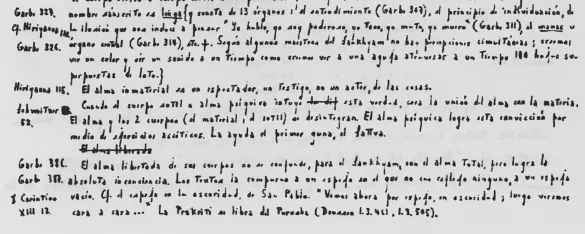 Garb. 327. nombre sánscrito es linga{y consta de 13 órganos : el entendimiento (Garbe 307), el principio de individuación, de
Cf. Hiriyanna la ilusión que nos induce a pensar "Yo hablo, yo soy poderoso, yo toco, yo mato, yo muero" (Garbe 311), el manas u
Garb. 326. órgano central (Garbe 314), etc. Según algunos maestros del Sankhyam no hay percepciones simultáneas; creemos
ver un color y oír un sonido a un tiempo como creemos ver a una aguja atravesar a un tiempo 100 hojas su-
perpuestas de loto.}
Hiriyanna 115. El alma inmaterial es un espectador, un testigo, no un actor, de las cosas.
Cuando el cuerpo sutil o alma psíquica intuye esta verdad, cesa la unión del alma con la materia.
52. El alma y los 2 cuerpos (el material y el sutil) se desintegran. El alma psíquica logra esta convicción por
medio de ejercicios ascéticos. La ayuda el primer guna, el sattva.
El alma liberada
Garb. 386. El alma libertada de sus cuerpos no se confunde, para el Sankhyam, con el alma total, pero logra la
Garb. 387. absoluta inconciencia. Los textos la comparan a un espejo en el que no cae reflejo ninguno, a un espejo
I Corintios vacío. Cf. el espejo en la oscuridad, de San Pablo. "Vemos ahora por espejo, en oscuridad; luego veremos
XIII 12. cara a cara..." La Prakriti se libra del Purusha (Deussen I.3.451, I.2.505).